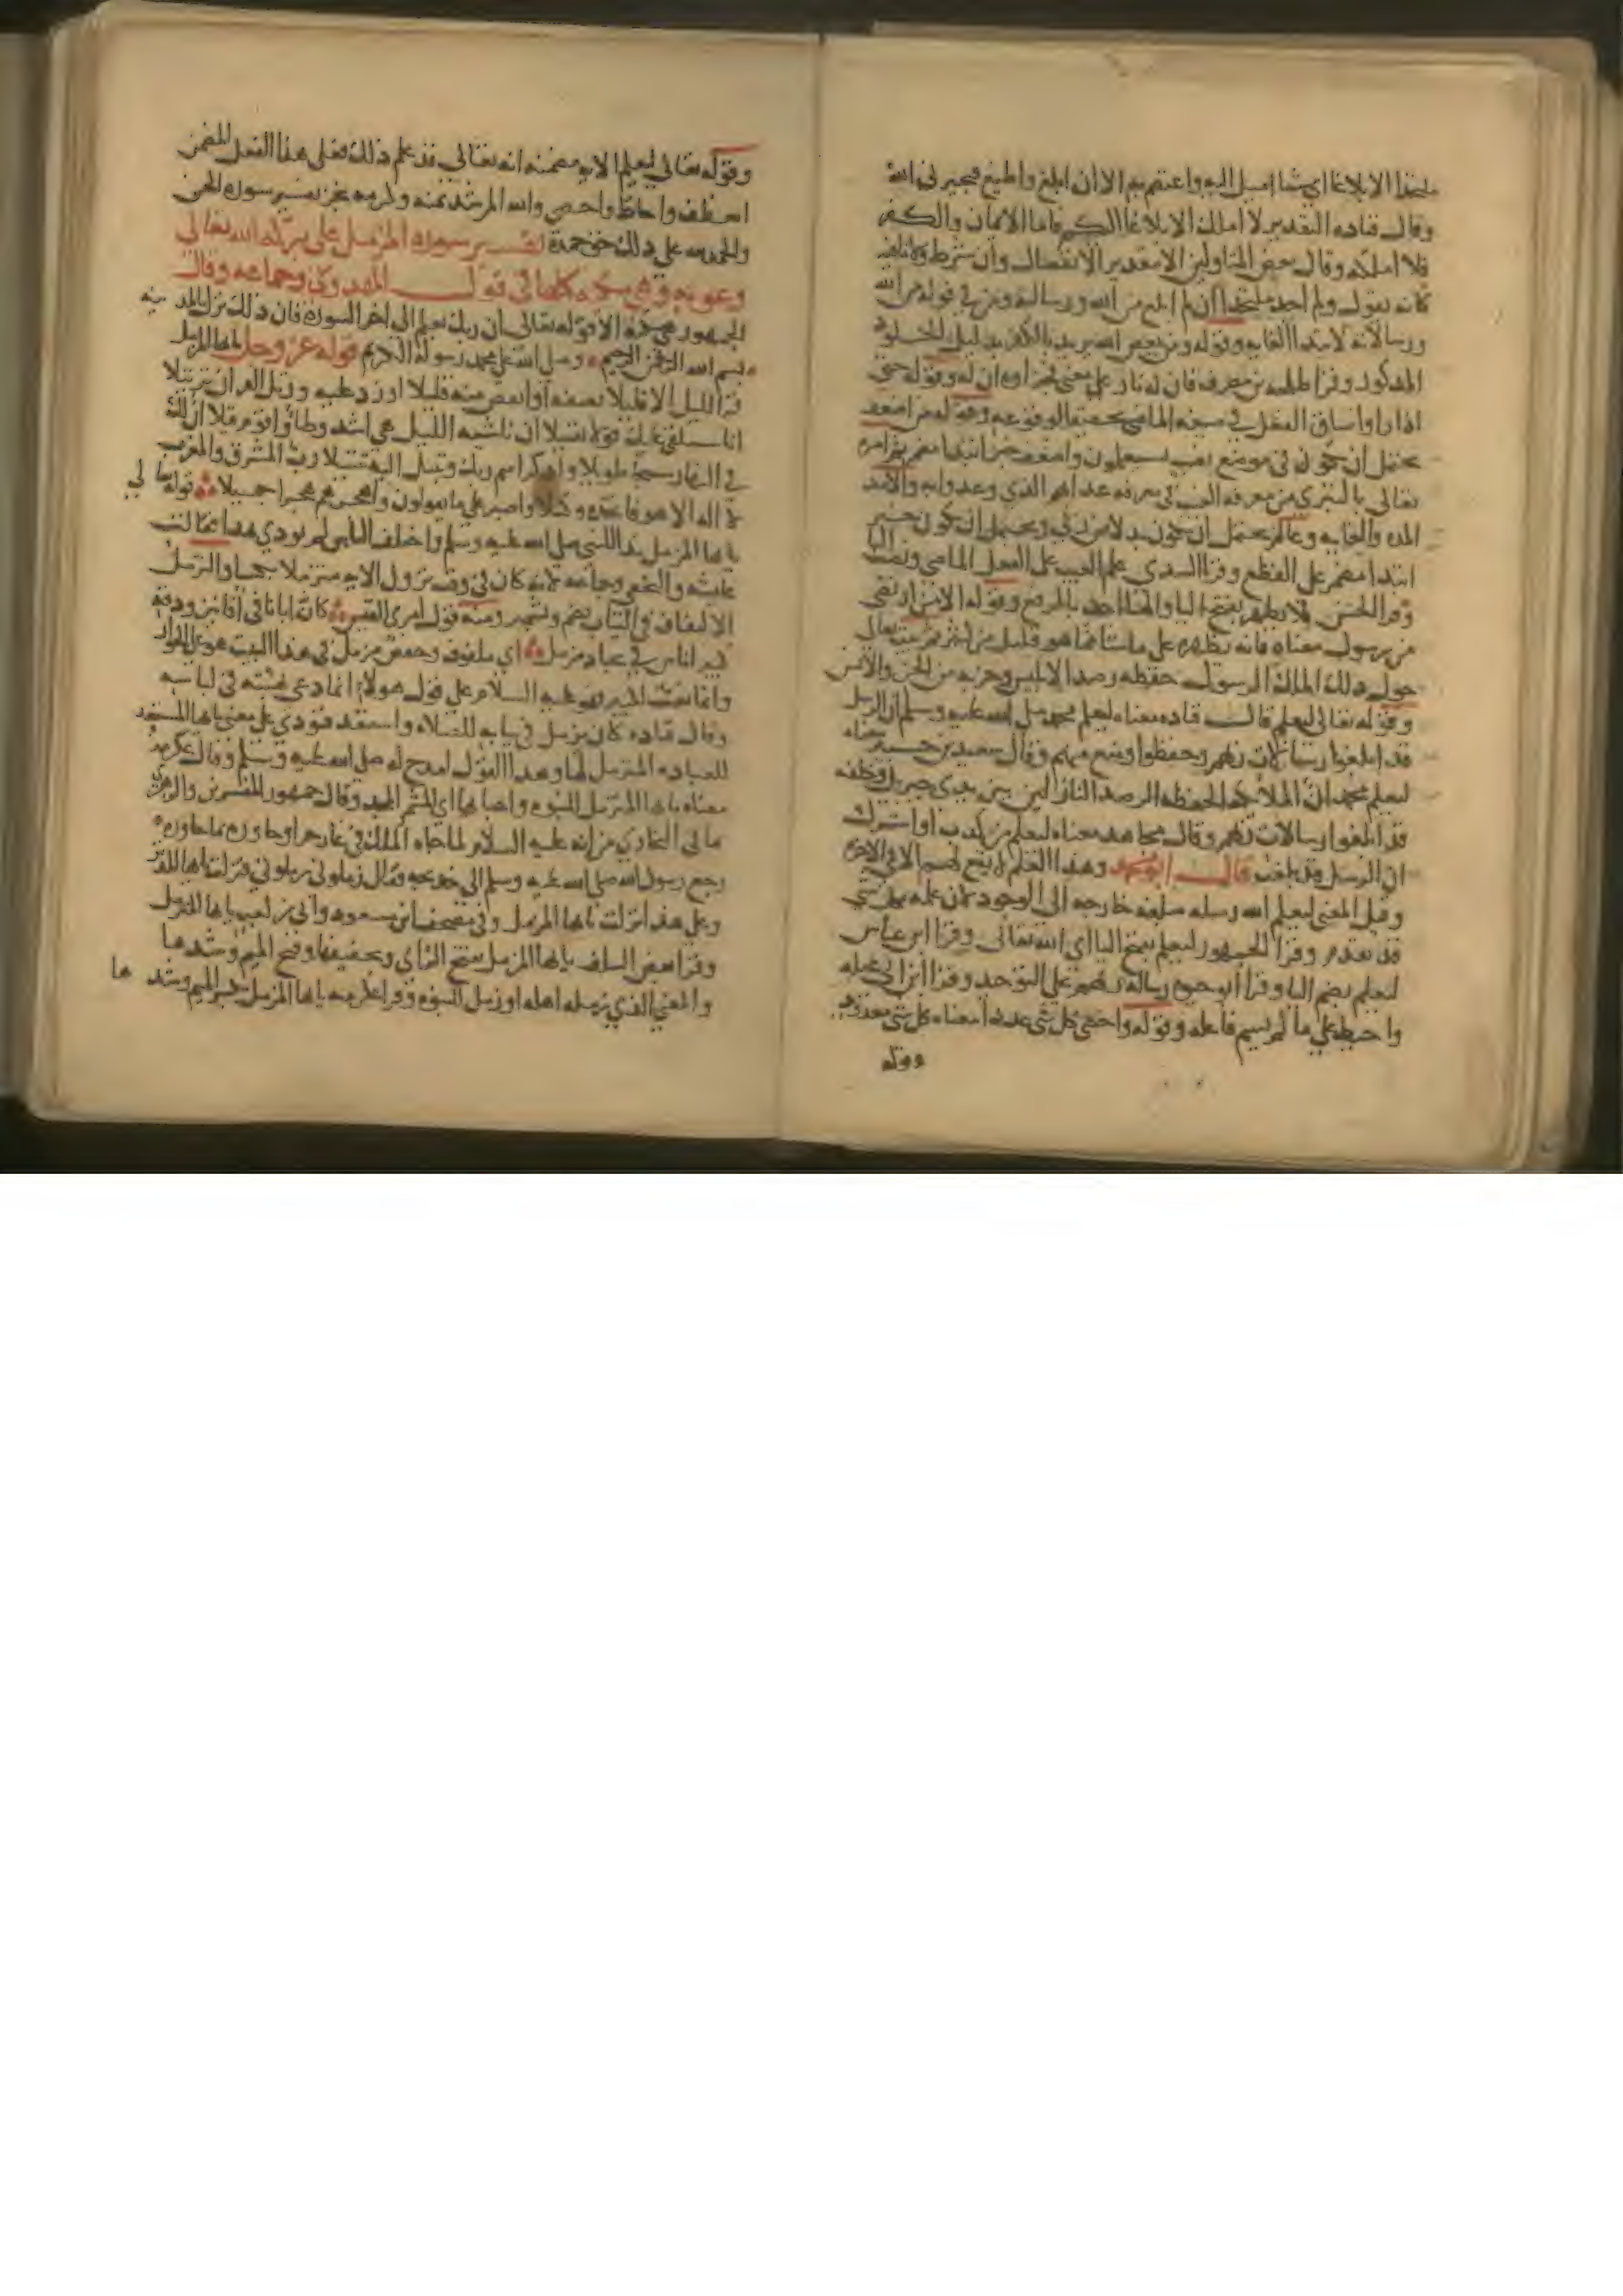 ملتحدا الا بلاغا اي شيا اميل اليه واعتصم به الا ان ابلغ واطيع فيجيرني الله
وقال قتاده التقدير لا املك الا بلاغا اليكم فاما الايمان والكفر
فلا املكه وقال بعض المتاولين الا بتقدير الانفصال وان شرط ولا نافيه
كانه يقول ولم اجد ملتحدا ان لم ابلغ من الله ورسالته ومن في قوله من الله
ورسالاته لابتدا الغايه وقوله ومن يعص الله يريد بالكفر بدليل الخلود
المذكور وقرا طلحه بن مصرف فان له نار على معنى فجزاوه ان له وقوله حتى
اذا راوا ساق الفعل في صيغه الماضي تحقيقا لوقوعه وقوله من اضعف
يحتمل ان تكون في موضع نصب بسيعلمون واضعف خبر ابتدا مضمر ثم امره
تعالى بالتبري من معرفه الغيب في معرفه عذابهم الذي وعدوا به والامد
المده والغايه وعالم يحتمل ان يكون بدلا من ربي ويحتمل ان يكون خبر
ابتدا مضمر على القطع وقرا السدي علم الغيب على الفعل الماضي ونصب البا
وقرا الحسن فلا يظهر بفتح اليا والها احد بالرفع وقوله الا من ارتضى
من رسول معناه فانه يظهره على ما شا مما هو قليل من كثير ثم يبث تعالى
حول ذلك الملك الرسول حفظه رصدا لابليس وحزبه من الجن والانس
وقوله تعالى ليعلم قال قتاده معناه ليعلم محمد صلى الله عليه وسلم ان الرسل
قد ابلغوا رسالات ربهم وحفظوا ومنع منهم وقال سعيد بن جبير معناه
ليعلم محمد ان الملائكه الحفظه الرصد النازلين بين يدي جبريل وخلفه
قد ابلغوا رسالات ربهم وقال مجاهد معناه ليعلم من كذب او اشرك
ان الرسل قد بلغت قال ابو محمد وهذا العلم لا يقع لهم الا في الاخره
وقيل المعنى ليعلم الله رسله مبلغه خارجه الى الوجود لان علمه بكل شي
قد تقدم وقرا الجمهور ليعلم بفتح اليا اي الله تعالى وقرا ابن عباس
ليعلم بضم اليا وقرا ابو حيوه رساله ربهم على التوحيد وقرا ابن ابي عبله
واحيط على ما لم يسم فاعله وقوله واحصى كل شي عددا معناه كل شي معدود
وقوله
وقوله تعالى ليعلم الايه مضمنه انه تعالى قد علم ذلك فعلى هذا الفعل المضمر
انعطف واحاط واحصى والله المرشد بمنه وكرمه نجز تفسير سوره الجن
والحمد لله على ذلك حق حمده تفسير سوره المزمل على بركه الله تعالى
وعونه وهي مكيه كلها في قول المهدوي وجماعه وقال
الجمهور هي مكيه الا قوله تعالى ان ربك يعلم الى اخر السوره فان ذلك نزل بالمدينه
بسم الله الرحمن الرحيم وصلى الله على محمد رسوله الكريم قوله عز وجل يا ايها المزمل
قم الليل الا قليلا نصفه او انقص منه قليلا او زد عليه ورتل القران ترتيلا
انا سنلقي عليك قولا ثقيلا ان ناشئه الليل هي اشد وطأ واقوم قيلا ان لك
في النهار سبحا طويلا واذكر اسم ربك وتبتل اليه تبتيلا رب المشرق والمغرب
لا اله الا هو فاتخذه وكيلا واصبر على ما يقولون واهجرهم هجرا جميلا قوله تعالى
يا ايها المزمل ندا للنبي صلى الله عليه وسلم واختلف الناس لم نودي بهذا فقالت
عائشه والنخعي وجماعه لانه كان في وقت نزول الايه متزملا بكسا والتزمل
الالتفاف في الثياب بضم وتشمير ومنه قول امرئ القيس كان ابانا في افانين ودقه
كبير اناس في بجاد مزمل اي ملفوف وخفض مزمل في هذا البيت هو على الجوار
وانما نعت الكبير فهو عليه السلام على قول هولاء انما دعي بهيئته في لباسه
وقال قتاده كان تزمل في ثيابه للصلاه واستعد فنودي على معنى يا ايها المستعد
للعباده المتزمل لها وهذا القول امدح له صلى الله عليه وسلم وقال عكرمه
معناه يا ايها المتزمل للنبوه واعبائها اي المتشمر المجد وقال جمهور المفسرين والزهري
بما في البخاري من انه عليه السلام لما جاه الملك في غار حرا وحاوره بما حاوره
رجع رسول الله صلى الله عليه وسلم الى خديجه فقال زملوني زملوني فنزلت يا ايها المدثر
وعلى هذا نزلت يا ايها المزمل وفي مصحف ابن مسعود وابي بن كعب يا ايها المتزمل
وقرا بعض السلف يا ايها المزمل بفتح الزاي وتخفيفها وفتح الميم وشدها
والمعنى الذي زمله اهله او زمل للنبوه وقرا عكرمه يا ايها المزمل بكسر الميم وشدها